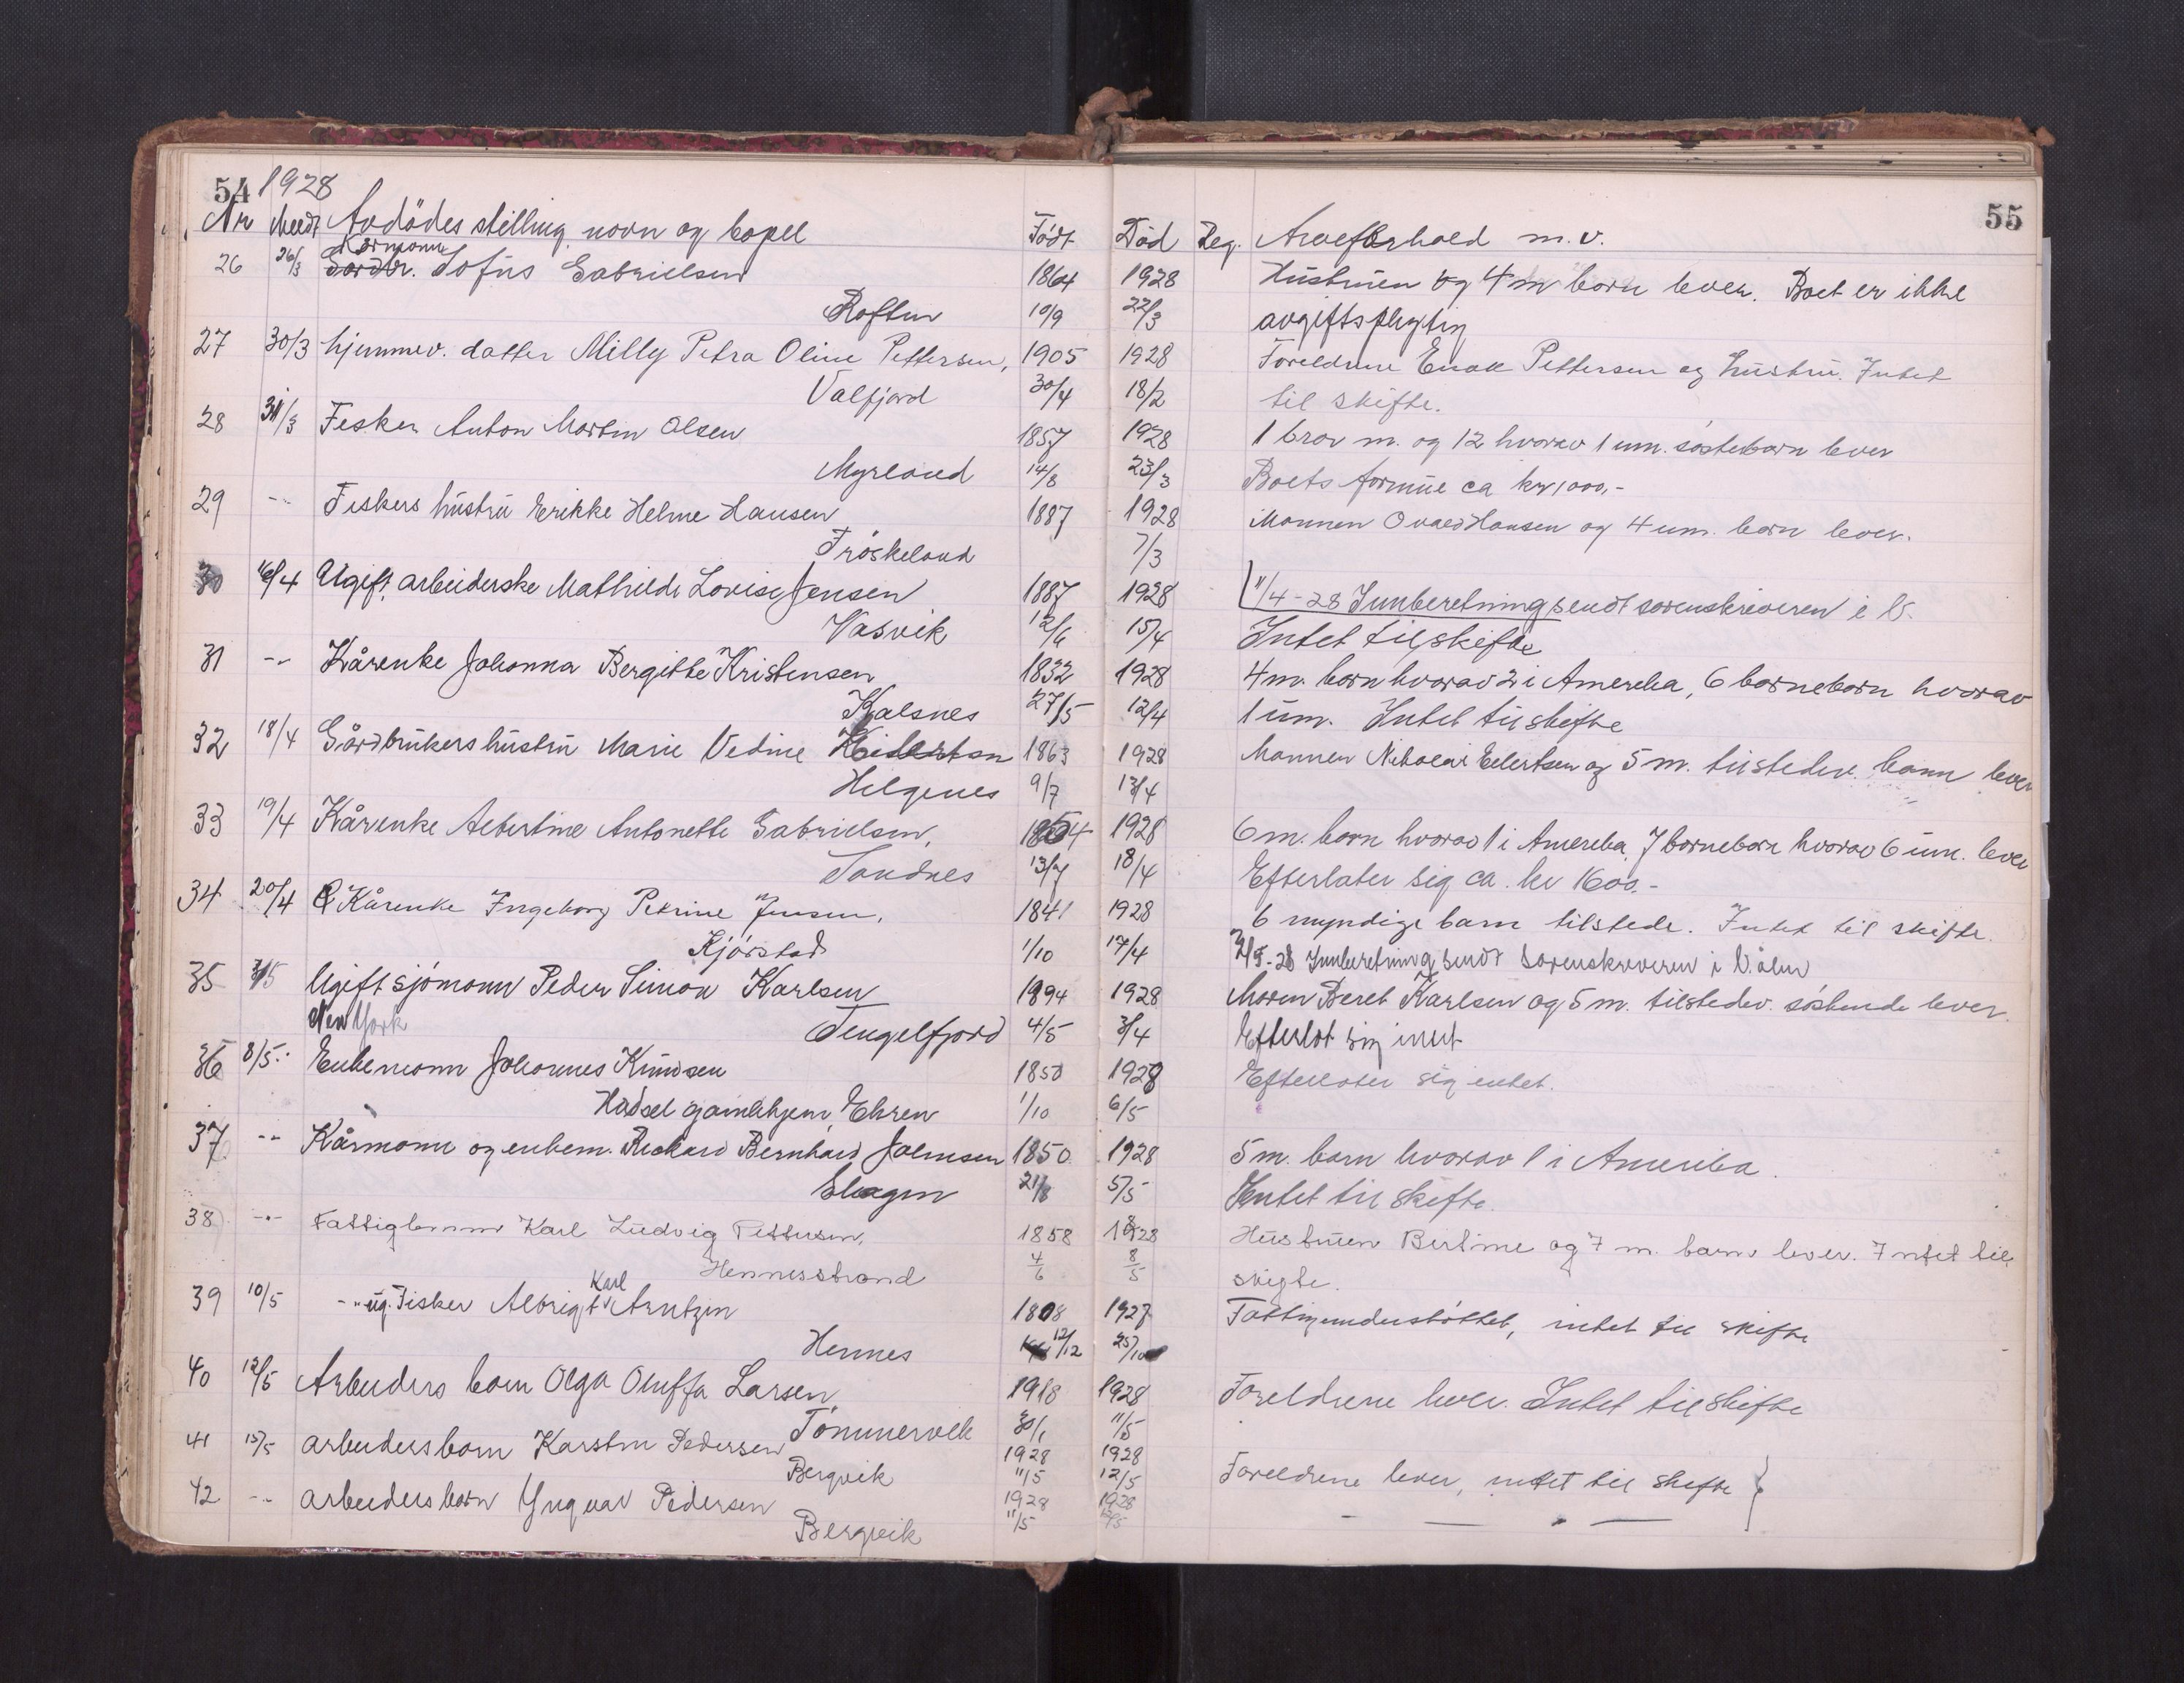 54 1928
Nr Meldt Avdödes stilling navn og bopel Født Död Reg. Arveforhold m.v. 55
Kårmann
26 26/3 Gårdbr. Sofus Gabrielsen 1864 1928 Hustruen og 4 m born lever. Boet er ikke
Roften 10/9 22/3 avgiftspligtig
27 30/3 hjemmev. datter Milly Petra Oline Pettersen, 1905 1928 Foreldrene Enok Pettersen og hustru. Intet
Valfjord 30/4 18/2 til skifte.
28 31/3 Fisker Anton Martin Olsen 1857 1928 1 bror m. og 12 hvorav 1 um. søsterbørn lever
Myrland 14/8 23/3 Boets formue ca kr 1000,-
29 -"- Fiskers hustru Erikke Helme Hansen 1887 1928 Mannen Ovald Hansen og 4 um. børn lever.
Frøskeland 7/3
30 16/4 Ugift arbeiderske Mathilde Lovise Jensen 1887 1928 11/4-28 Innberetning sendt sorenskriveren i V.
Vasvik 12/6 15/4 Intet til skifte
31 -"- Kårenke Johanna Bergitte Kristensen 1832 1928 4 m. børn hvorav 2 i Amerika, 6 børnebørn hvorav
Kalsnes 27/5 12/4 1 um. Intet til skifte
32 18/4 Gårdbrukers hustru Marie Vedine Eilertsen 1863 1928 Mannen Nikolai Eilertsen og 5 m. tilstedev. barn lever
Helgenes 9/7 13/4
33 19/4 Kårenke Albertine Antonette Gabrielsen, 1854 1928 6 m. børn hvorav 1 i Amerika, 7 børnebørn hvorav 6 um. lever
Sandnes 13/7 18/4 Efterlater sig ca. kr 1600.-
34 20/4 Kårenke Ingeborg Petrine Jensen, 1841 1928 6 myndige barn tilstede. Intet til skifte.
Kjørstad 1/10 17/4 2/5-28 Innberetning sendt sorenskriveren i V.ålen
35 3/5 Ugift sjømann Peder Simon Karlsen 1894 1928 Moren Beret Karlsen og 5 m. tilstedev. søskende lever.
New York Tengelfjord 4/5 3/4 Efterlot sig intet
36 8/5 Enkemann Johannes Knudsen 1850 1928 Efterlater sig intet.
Hadsel gamlehjem, Ekren 1/10 6/5
37 -"- Kårmann og enkem. Rickard Bernhard Johnsen 1850 1928 5 m. barn hvorav 1 i Amerika.
Skagen 21/8 5/5 Intet til skifte.
38 -"- Fattiglemm Karl Ludvig Pettersen, 1858 1928 Hustruen Bertine og 7 m. barn lever. Intet til
Hennesstrand 4/6 8/5 skifte.
Karl
39 10/5 -"- ug. Fisker Albrigt Arntzen 18 8 1927 Fattigunderstøttet, intet til skifte
Hennes 12/12 25/10
40 12/5 Arbeiders barn Olga Oluffa Larsen, 1918 1928 Foreldrene lever. Intet til skifte
Tømmervik 30/1 11/5
41 15/5 arbeidersbarn Karsten Pedersen 1928 1928
Bergvik 11/5 12/5 Foreldrene lever, intet til skifte }
42 -"- arbeidersbarn Yngvar Pedersen 1928 1928
Bergvik 11/5 12/5 - — " —